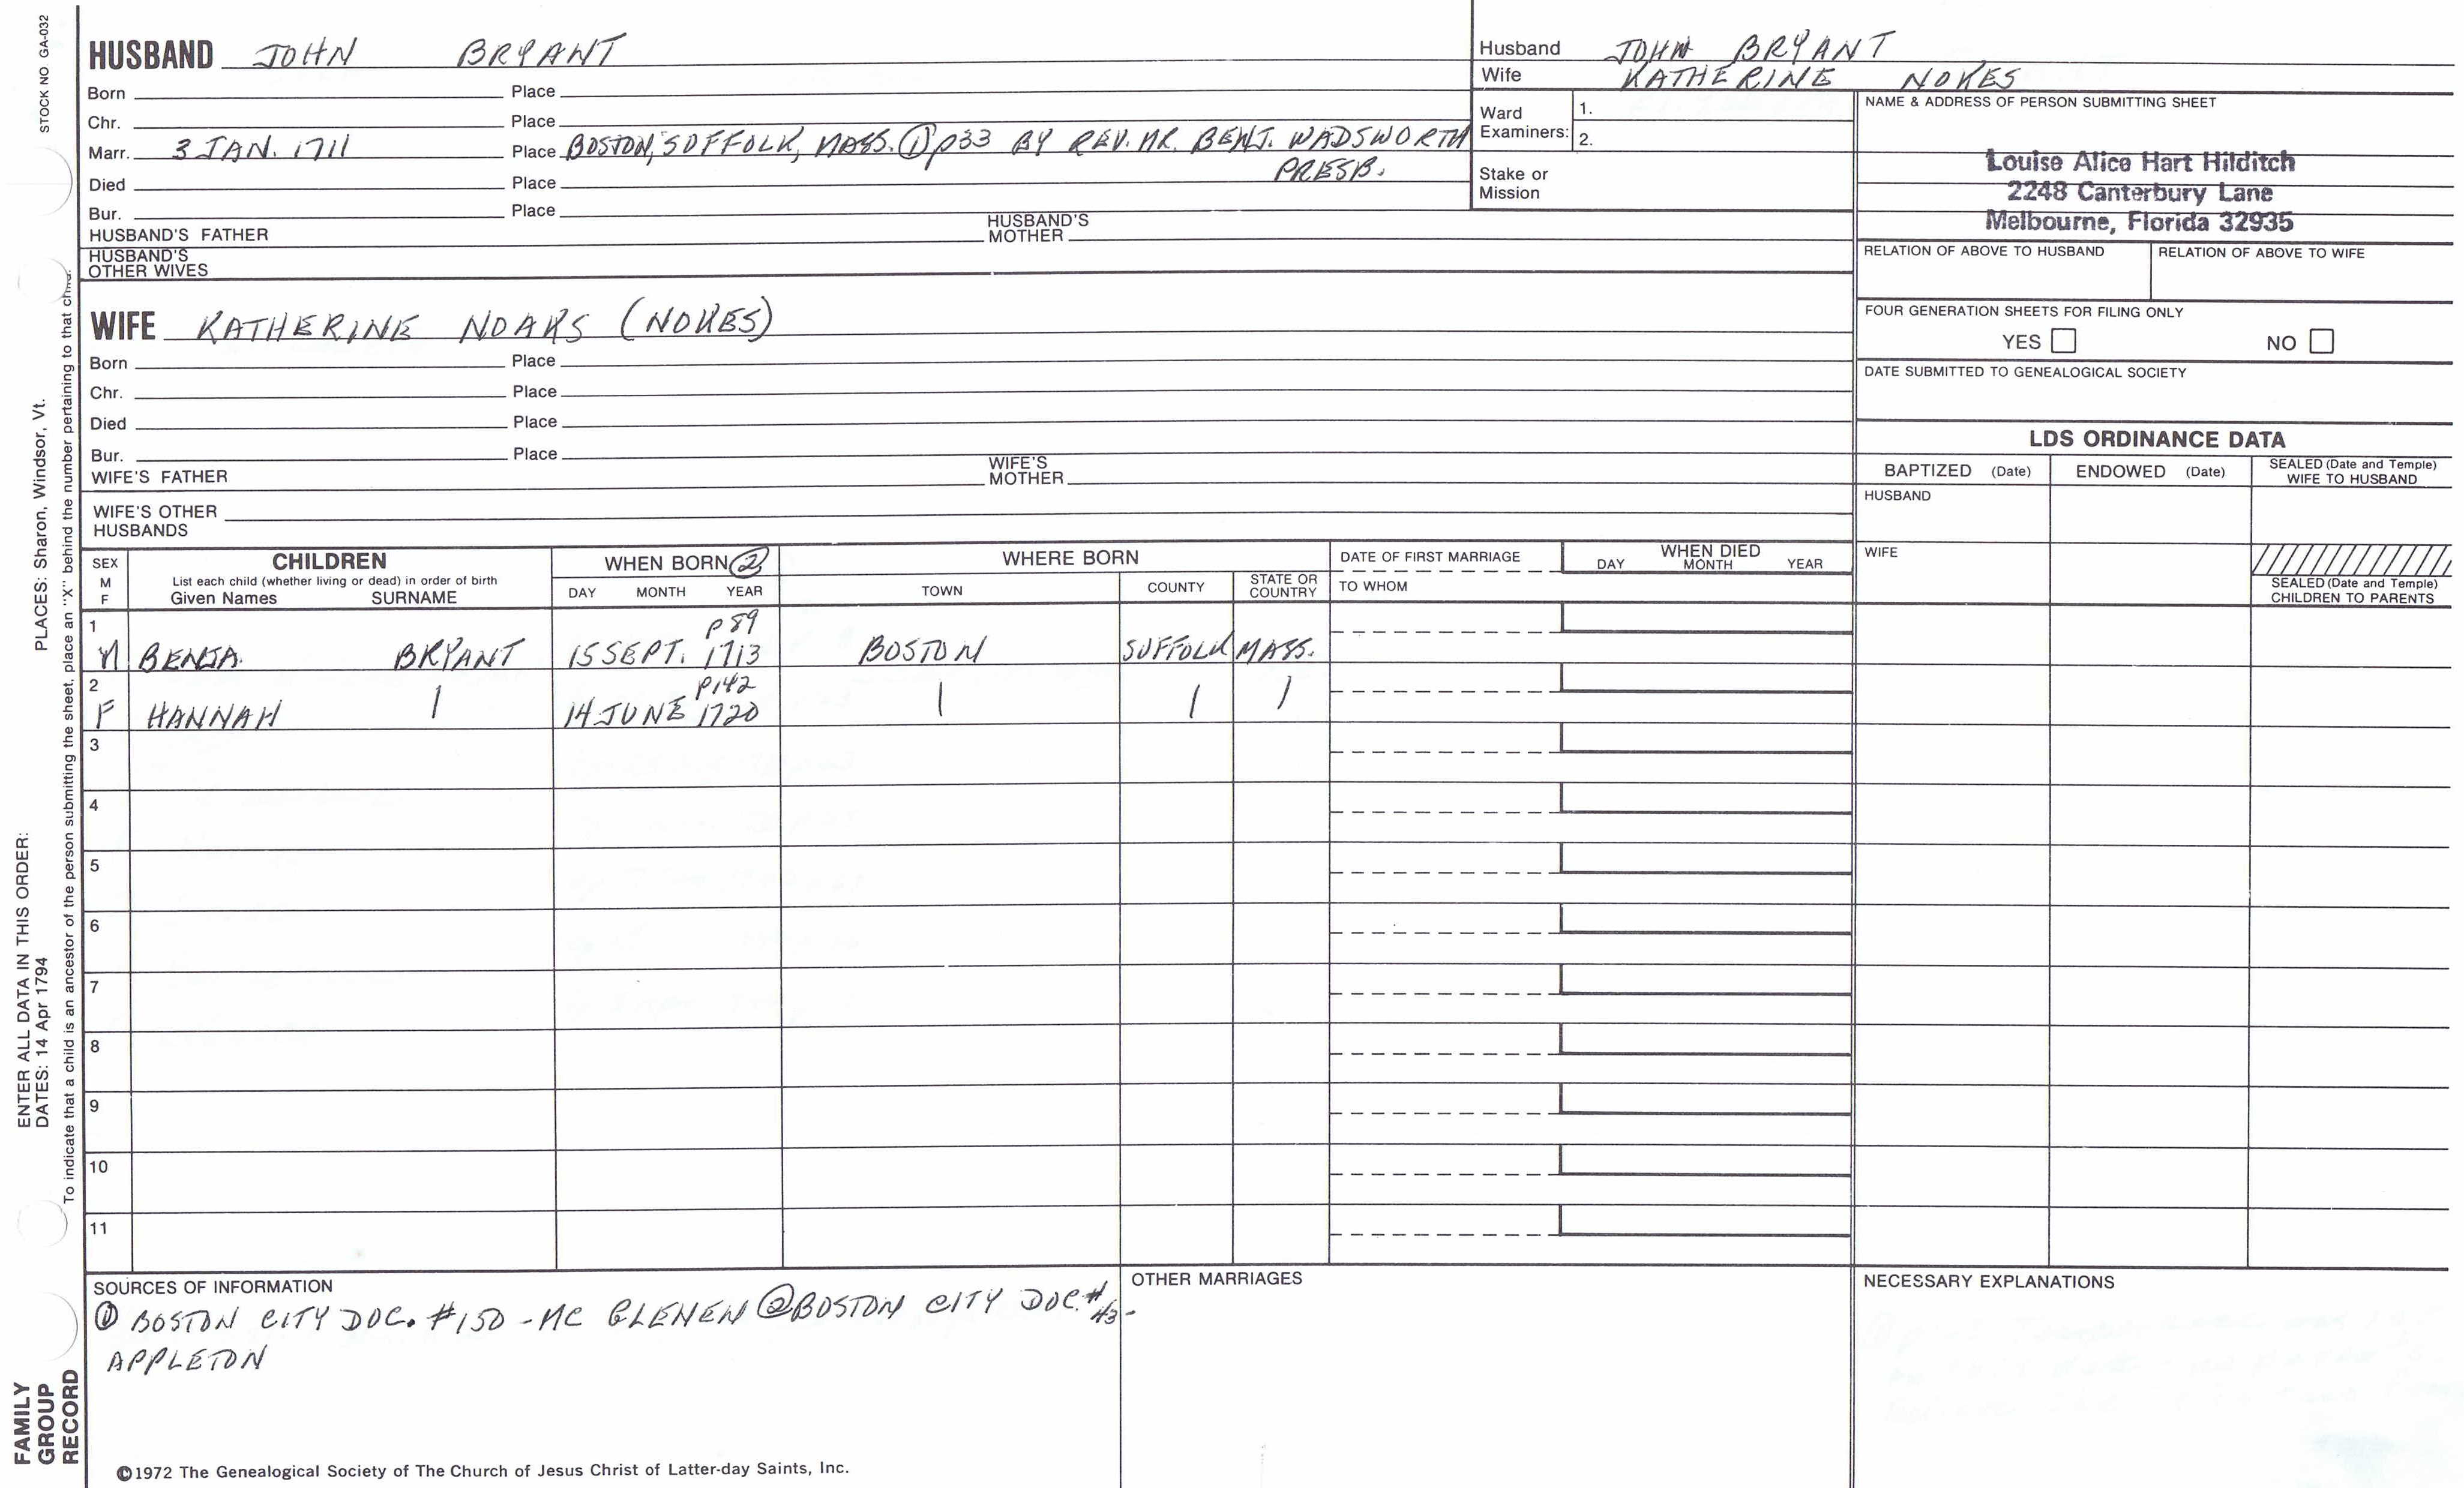 STOCK NO GA-032
HUSBAND JOHN BRYANT
Born Place
Chr. Place
Marr. 3 JAN. 1711 Place BOSTON, SUFFOLK, MASS. ① p33 BY REV. MR. BENJ. WADSWORTH
PRESB.
Died Place
Bur. Place
HUSBAND'S FATHER HUSBAND'S MOTHER
HUSBAND'S OTHER WIVES
Husband JOHN BRYANT
Wife KATHERINE NOKES
Ward Examiners: 1.
2.
Stake or Mission
NAME & ADDRESS OF PERSON SUBMITTING SHEET
Louise Alice Hart Hilditch
2248 Canterbury Lane
Melbourne, Florida 32935
RELATION OF ABOVE TO HUSBAND RELATION OF ABOVE TO WIFE
FOUR GENERATION SHEETS FOR FILING ONLY
YES NO
DATE SUBMITTED TO GENEALOGICAL SOCIETY
WIFE KATHERINE NOAKS (NOKES)
Born Place
Chr. Place
Died Place
Bur. Place
WIFE'S FATHER WIFE'S MOTHER
WIFE'S OTHER HUSBANDS
LDS ORDINANCE DATA
BAPTIZED (Date) ENDOWED (Date) SEALED (Date and Temple) WIFE TO HUSBAND
HUSBAND
WIFE
SEALED (Date and Temple) CHILDREN TO PARENTS
SEX M F
CHILDREN
List each child (whether living or dead) in order of birth
Given Names SURNAME
WHEN BORN ②
DAY MONTH YEAR
WHERE BORN
TOWN COUNTY STATE OR COUNTRY
DATE OF FIRST MARRIAGE
TO WHOM
WHEN DIED
DAY MONTH YEAR
1 p89
M BENJA. BRYANT 15 SEPT. 1713 BOSTON SUFFOLK MASS.
2 p142
F HANNAH | 14 JUNE 1720 | | |
3
4
5
6
7
8
9
10
11
SOURCES OF INFORMATION
① BOSTON CITY DOC. #150 - MC GLENEN ② BOSTON CITY DOC. #43 -
APPLETON
OTHER MARRIAGES
NECESSARY EXPLANATIONS
©1972 The Genealogical Society of The Church of Jesus Christ of Latter-day Saints, Inc.
FAMILY
GROUP
RECORD
ENTER ALL DATA IN THIS ORDER:
DATES: 14 Apr 1794 PLACES: Sharon, Windsor, Vt.
To indicate that a child is an ancestor of the person submitting the sheet, place an "X" behind the number pertaining to that child.